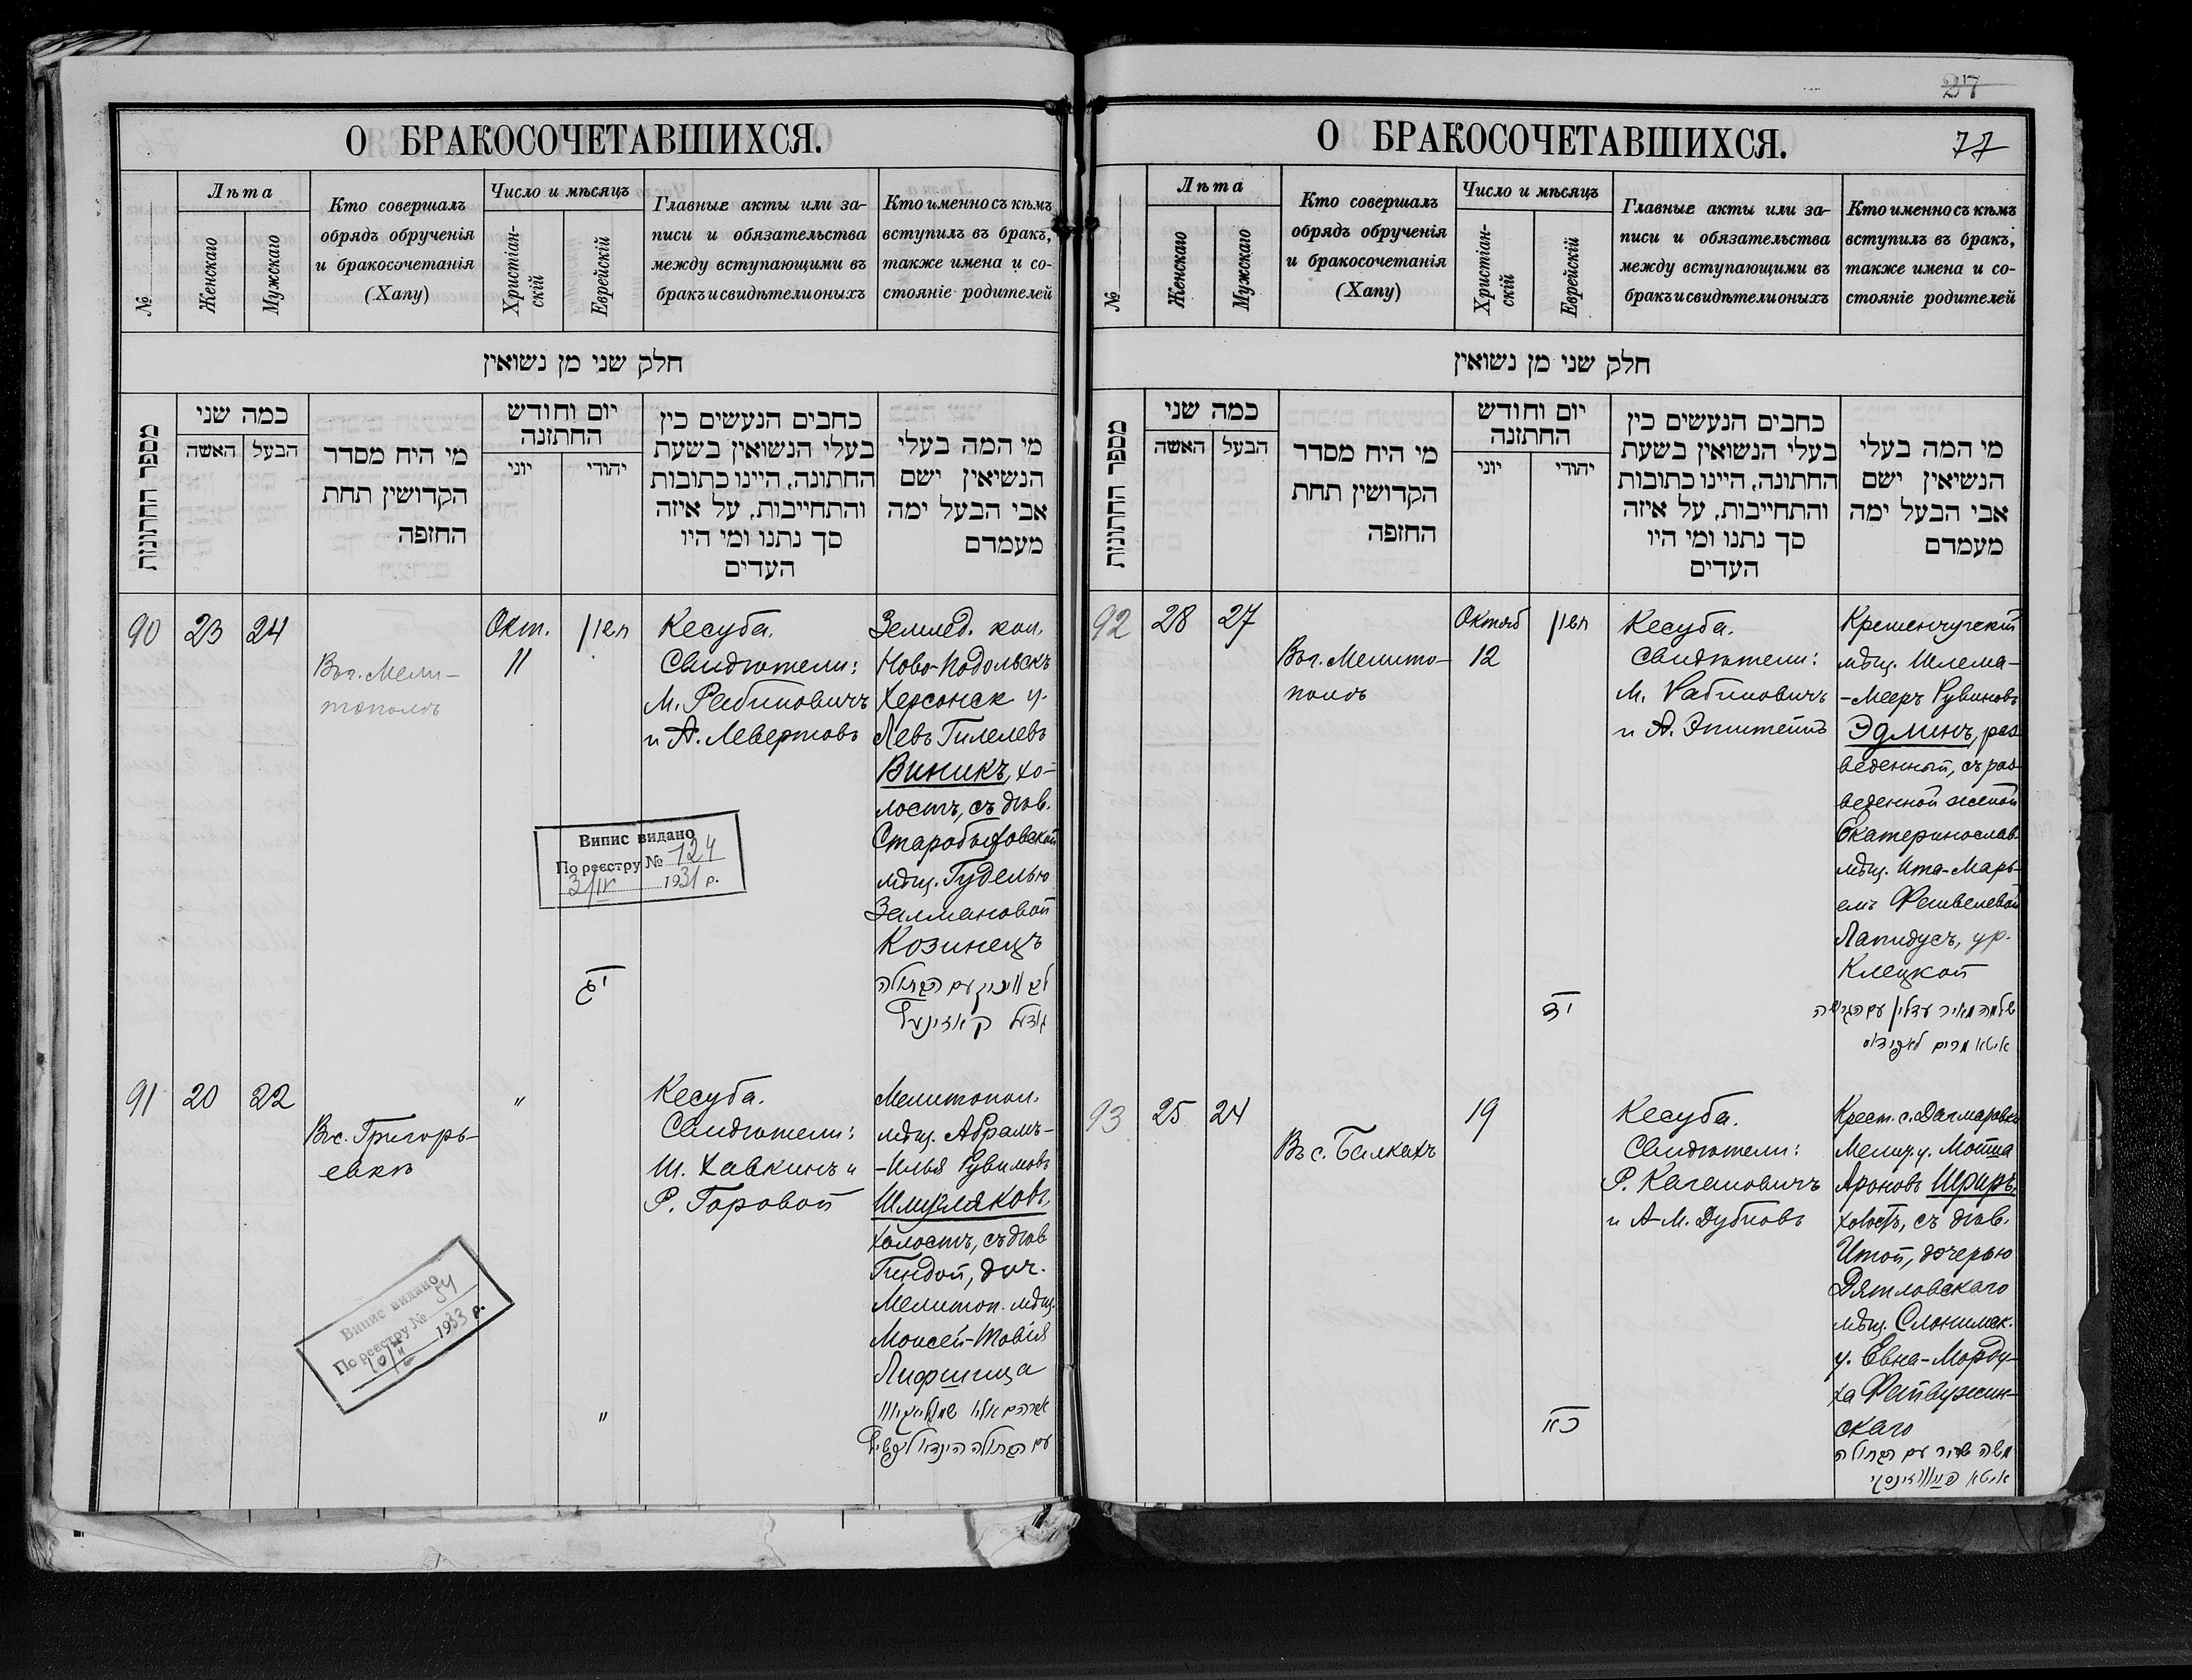 О БРАКОСОЧЕТАВШИХСЯ.
№
Лѣта
Женскаго
Мужскаго
Кто совершалъ
обрядъ обрученія
и бракосочетанія
(Хапу)
Число и мѣсяцъ
Христіан-
скій
Еврейскій
Главные акты или за-
писи и обязательства
между вступающими въ
бракъ и свидѣтели оныхъ
Кто именно съ кѣмъ
вступилъ въ бракъ,
также имена и со-
стояніе родителей
חלק שני מן נשואין
מספר החתונות
כמה שני
האשה
הבעל
מי היח מסדר
הקדושין תחת
החזפה
יום וחודש
החתזנה
יוני
יהודי
כחבים הנעשים כין
בעלי הנשואין בשעת
החתונה, היינו כתובות
והתחייבות, על איזה
סך נתנו ומי היו
העדים
מי המה בעלי
הנשיאין ישם
אבי הבעל ימה
מעמדם
90
23
24
Въ г. Мели-
тополѣ
Окт.
11
Кесуба.
Свидѣтели:
М. Рабиновичъ
и А. Левертовъ
Землед. кол.
Ново-Подольскъ
Херсонск у.
Левъ Гилелевъ
Виникъ, хо-
лостъ, съ дѣв.
Старобыховской
мѣщ. Гуделью
Залмановой
Козинецъ
יג
Випис видано
По реєстру № 124
3/IV 1931 р.
91
20
22
Въ с. Григорь-
евкѣ
"
Кесуба.
Свидѣтели:
Ш. Хавкинъ и
Р. Горовой
Мелитопол.
мѣщ. Абрамъ-
-Илья Рувимовъ
Шмугляковъ,
холостъ, съ дѣв
Гиндой, доч.
Мелитоп. мѣщ.
Моисей-Товія
Лифшица
"
Випис видано
По реєстру № 54
1933 р.
27
77
О БРАКОСОЧЕТАВШИХСЯ.
№
Лѣта
Женскаго
Мужскаго
Кто совершалъ
обрядъ обрученія
и бракосочетанія
(Хапу)
Число и мѣсяцъ
Христіан-
скій
Еврейскій
Главныє акты или за-
писи и обязательства
между вступающими въ
бракъ и свидѣтели оныхъ
Кто именно съ кѣмъ
вступилъ въ бракъ,
также имена и со-
стояніе родителей
חלק שני מן נשואין
מספר החתונות
כמה שני
האשה
הבעל
מי היח מסדר
הקדושין תחת
החזפה
יום וחודש
החתזנה
יוני
יהודי
כחבים הנעשים כין
בעלי הנשואין בשעת
החתונה, היינו כתובות
והתחייבות, על איזה
סך נתנו ומי היו
העדים
מי המה בעלי
הנשיאין ישם
אבי הבעל ימה
מעמדם
92
28
27
Въ г. Мелито-
полѣ
Октяб
12
Кесуба.
Свидѣтели:
М. Рабиновичъ
и А. Эпштейнъ
Кременчугскій
мѣщ. Шлема-
-Мееръ Рувиновъ
Эдлинъ, раз
веденный, съ раз-
веденной женой
Екатеринослав.
мѣщ. Ита-Марь-
емъ Фейвелевой
Лапидусъ, ур.
Клецкой
יד
שלמה מאיר עדלין עם הגרושה
איטא מרים לאפידוס
93
25
24
Въ с. Балкахъ
19
Кесуба.
Свидѣтели:
Р. Кагановичъ
и А-М. Дубновъ
Крест. с. Дагмаровка
Мелит. у. Мовша
Ароновъ Шриръ,
холостъ, съ дѣв.
Итой, дочерью
Дятловскаго
мѣщ. Слонимск.
у. Евна-Морду-
ха Фейвужин-
скаго
כא
משה שריר עם הבתולה